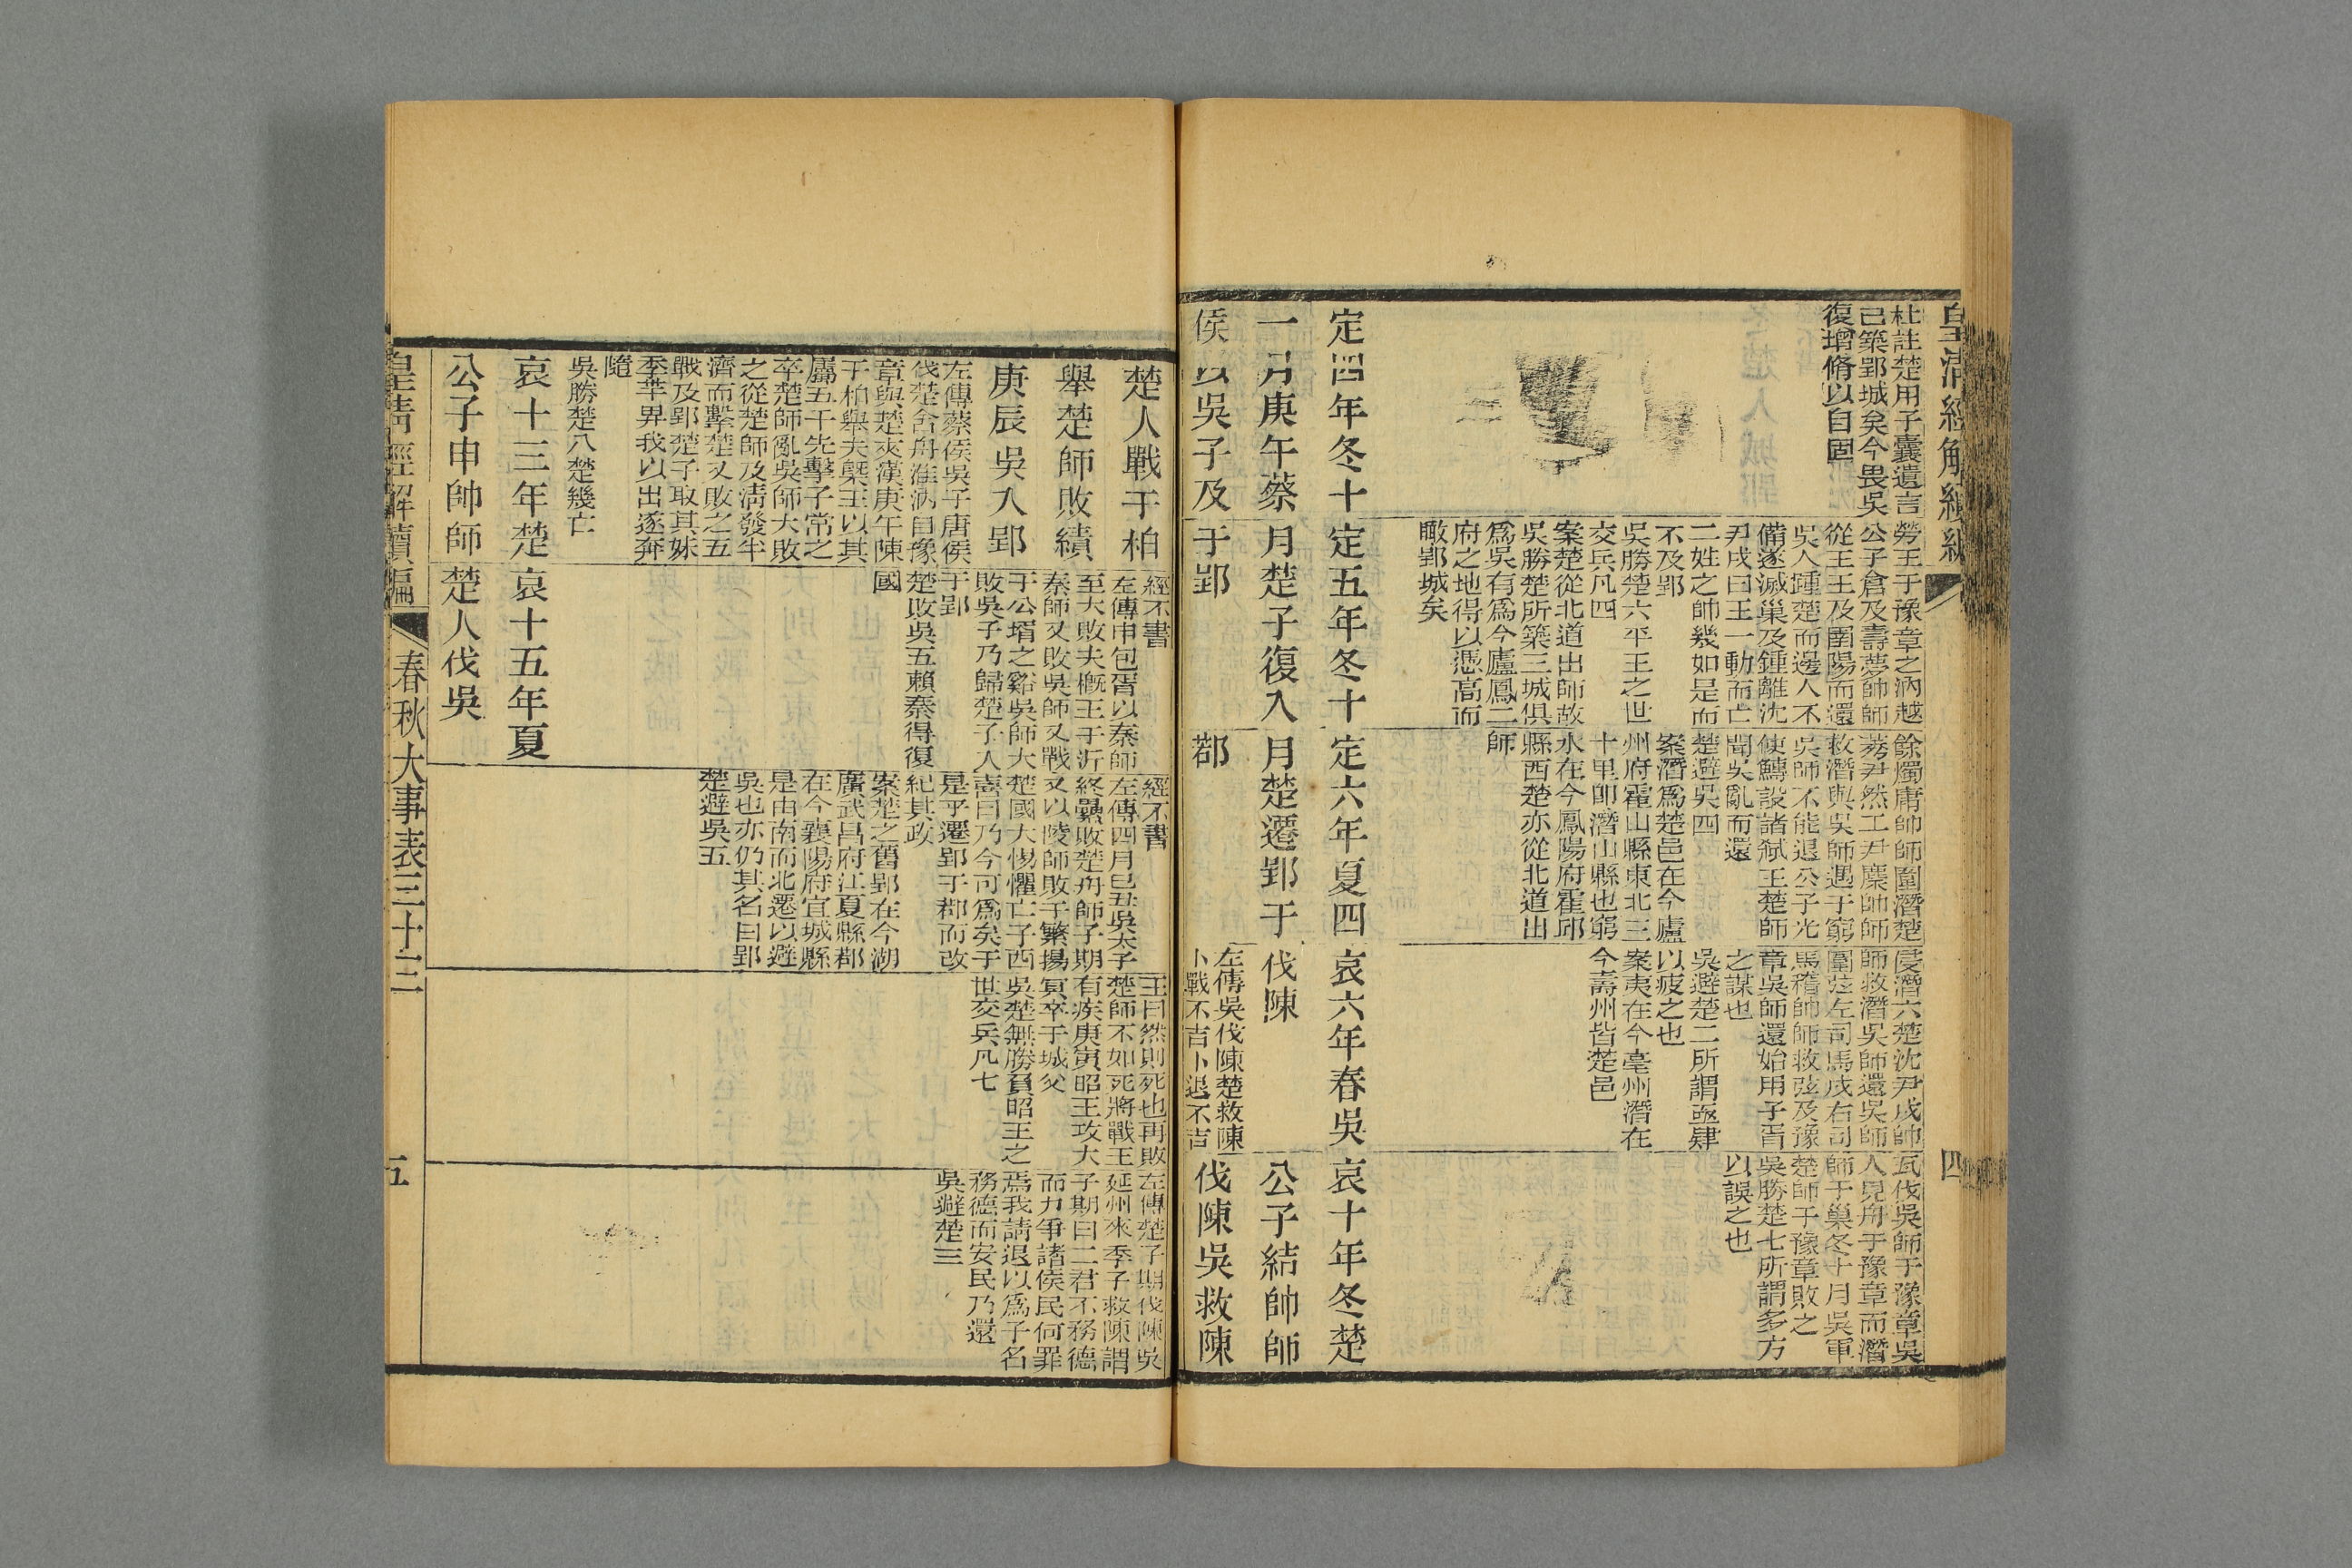 皇清經解續編
四
杜註楚用子囊遺言
已築郢城矣今畏吳
復增脩以自固
勞王于豫章之汭越
公子倉及壽夢帥師
從王王及圉陽而還
吳人踵楚而邊人不
備遂滅巢及鍾離沈
尹戌曰王一動而亡
二姓之帥幾如是而
不及郢
吳勝楚六平王之世
交兵凡四
案楚從北道出師故
吳勝楚所築三城俱
爲吳有爲今廬鳳二
府之地得以憑高而
瞰郢城矣
餘燭庸帥師圍潛楚
莠尹然工尹麇帥師
救潛與吳師遇于窮
吳師不能退公子光
使鱄設諸弑王楚師
聞吳亂而還
楚避吳四
案潛爲楚邑在今廬
州府霍山縣東北三
十里卽潛山縣也窮
水在今鳳陽府霍邱
縣西楚亦從北道出
師
侵潛六楚沈尹戌帥
師救潛吳師還吳師
圍弦左司馬戌右司
馬稽帥師救弦及豫
章吳師還始用子胥
之謀也
吳避楚二所謂亟肄
以疲之也
案夷在今亳州潛在
今壽州皆楚邑
瓦伐吳師于豫章吳
人見舟于豫章而潛
師于巢冬十月吳軍
楚師于豫章敗之
吳勝楚七所謂多方
以誤之也
定四年冬十
一月庚午蔡
侯以吳子及
定五年冬十
月楚子復入
于郢
定六年夏四
月楚遷郢于
鄀
哀六年春吳
伐陳
左傳吳伐陳楚救陳
卜戰不吉卜退不吉
哀十年冬楚
公子結帥師
伐陳吳救陳
楚人戰于柏
舉楚師敗績
庚辰吳入郢
左傳蔡侯吳子唐侯
伐楚舍舟淮汭自豫
章與楚夾漢庚午陳
于柏舉夫槩王以其
屬五千先擊子常之
卒楚師亂吳師大敗
之從楚師及淸發半
濟而擊楚又敗之五
戰及郢楚子取其妹
季芈畀我以出遂奔
隨
吳勝楚八楚幾亡
經不書
左傳申包胥以秦師
至大敗夫槪王于沂
秦師又敗吳師又戰
于公壻之谿吳師大
敗吳子乃歸楚子入
于郢
楚敗吳五賴秦得復
國
經不書
左傳四月己丑吳太子
終纍敗楚舟師子期
又以陵師敗于繁揚
楚國大惕懼亡子西
喜曰乃今可爲矣于
是乎遷郢于鄀而改
紀其政
案楚之舊郢在今湖
廣武昌府江夏縣鄀
在今襄陽府宜城縣
是由南而北遷以避
吳也亦仍其名曰郢
楚避吳五
王曰然則死也再敗
楚師不如死將戰王
有疾庚寅昭王攻大
冥卒于城父
吳楚無勝負昭王之
世交兵凡七
左傳楚子期伐陳吳
延州來季子救陳謂
子期曰二君不務德
而力爭諸侯民何罪
焉我請退以爲子名
務德而安民乃還
吳避楚三
哀十三年楚
公子申帥師
哀十五年夏
楚人伐吳
皇清經解續編
春秋大事表三十三
五